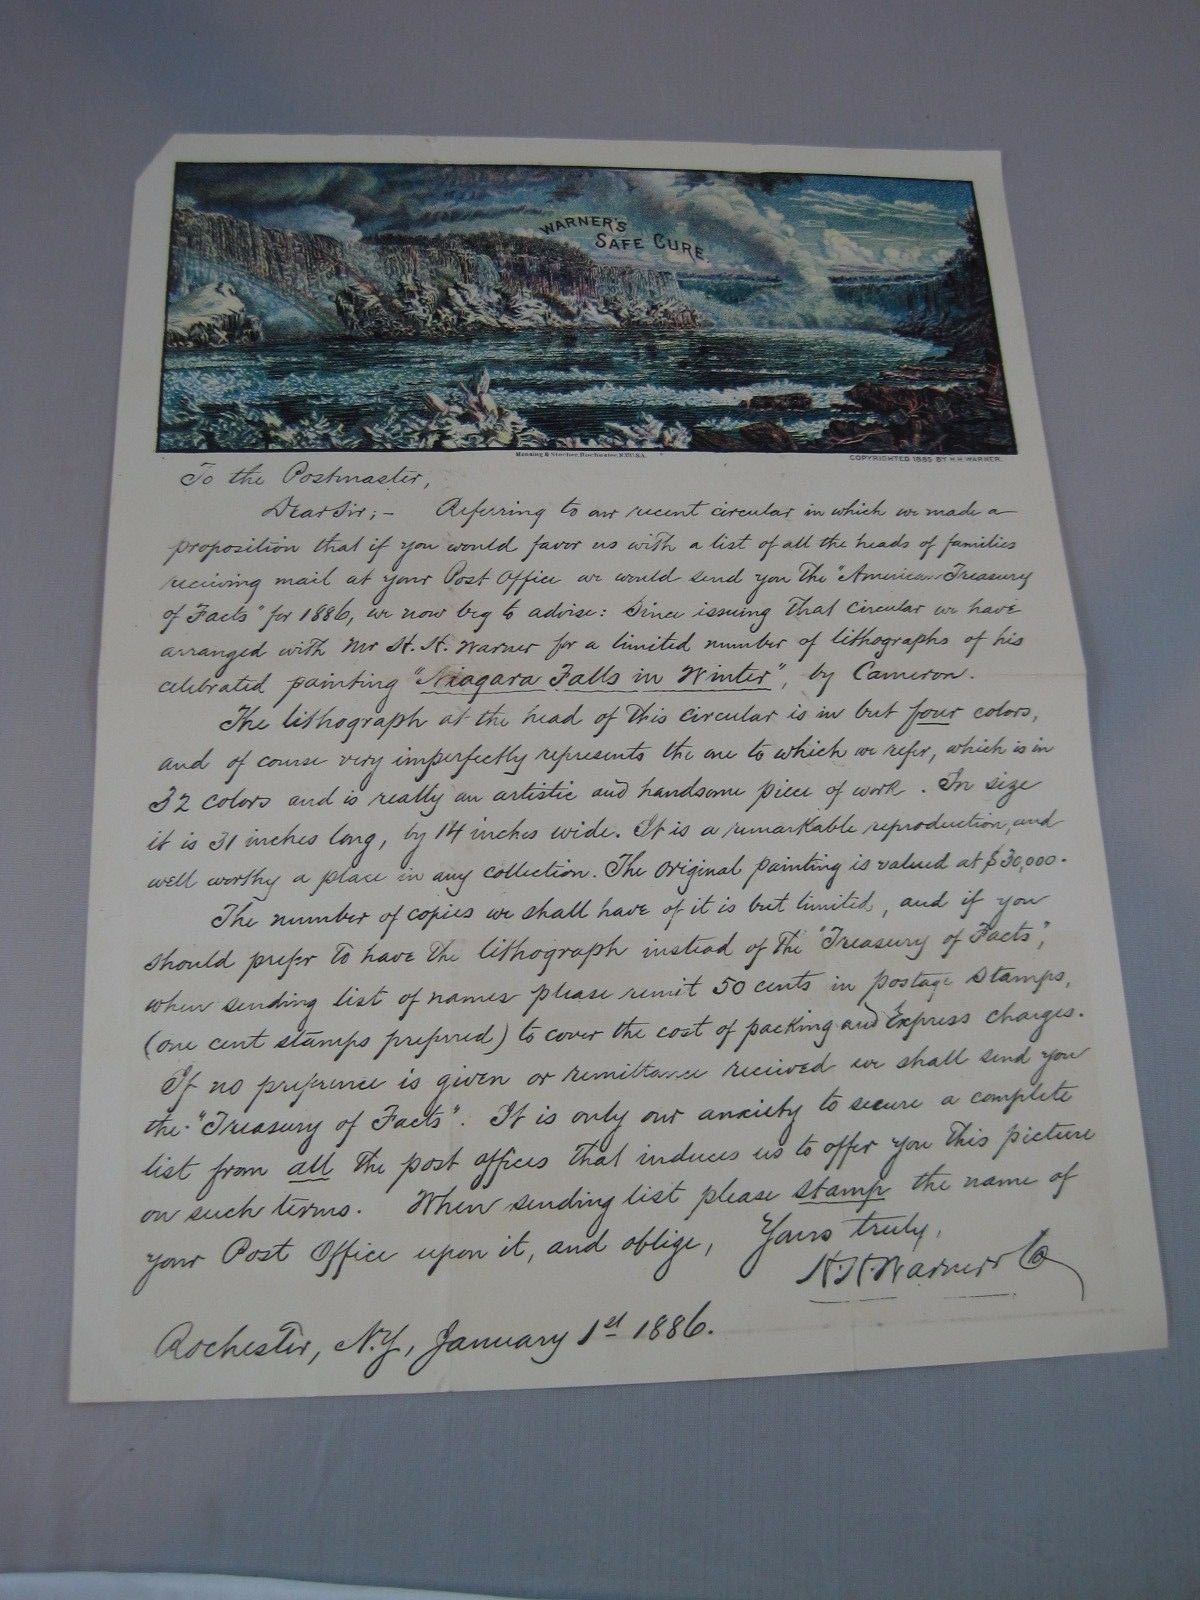 WARNER'S
SAFE CURE
COPYRIGHTED 1885 BY H.H. WARNER.
To the Postmaster,
Dear Sir; - Referring to our recent circular in which we made a
proposition that if you would favor us with a list of all the heads of families
receiving mail at your Post Office we would send you the "American Treasury
of Facts" for 1886, we now beg to advise: Since issuing that circular we have
arranged with Mr H. H. Warner for a limited number of lithographs of his
celebrated painting "Niagara Falls in Winter", by Cameron.
The lithograph at the head of this circular is in but four colors,
and of course very imperfectly represents the one to which we refer, which is in
32 colors and is really an artistic and handsome piece of work. In size
it is 31 inches long, by 14 inches wide. It is a remarkable reproduction, and
well worthy a place in any collection. The original painting is valued at $30,000.
The number of copies we shall have of it is but limited, and if you
should prefer to have the lithograph instead of the "Treasury of Facts",
when sending list of names please remit 50 cents in postage stamps,
(one cent stamps preferred) to cover the cost of packing and Express charges.
If no preference is given or remittance received we shall send you
the "Treasury of Facts". It is only our anxiety to secure a complete
list from all the post offices that induces us to offer you this picture
on such terms. When sending list please stamp the name of
your Post Office upon it, and oblige, Yours truly,
H.H. Warner & Co
Rochester, N.Y., January 1st 1886.